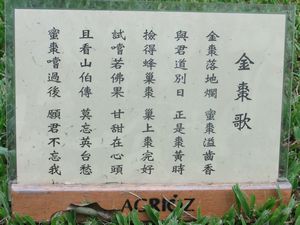 金棗歌
金棗落地爛 蜜棗溢齒香
與君道別日 正是棗黃時
撿得蜂巢棗 巢上棗完好
試嚐若佛果 甘甜在心頭
且看山伯傳 莫忘英台愁
蜜棗嚐過後 願君不忘我